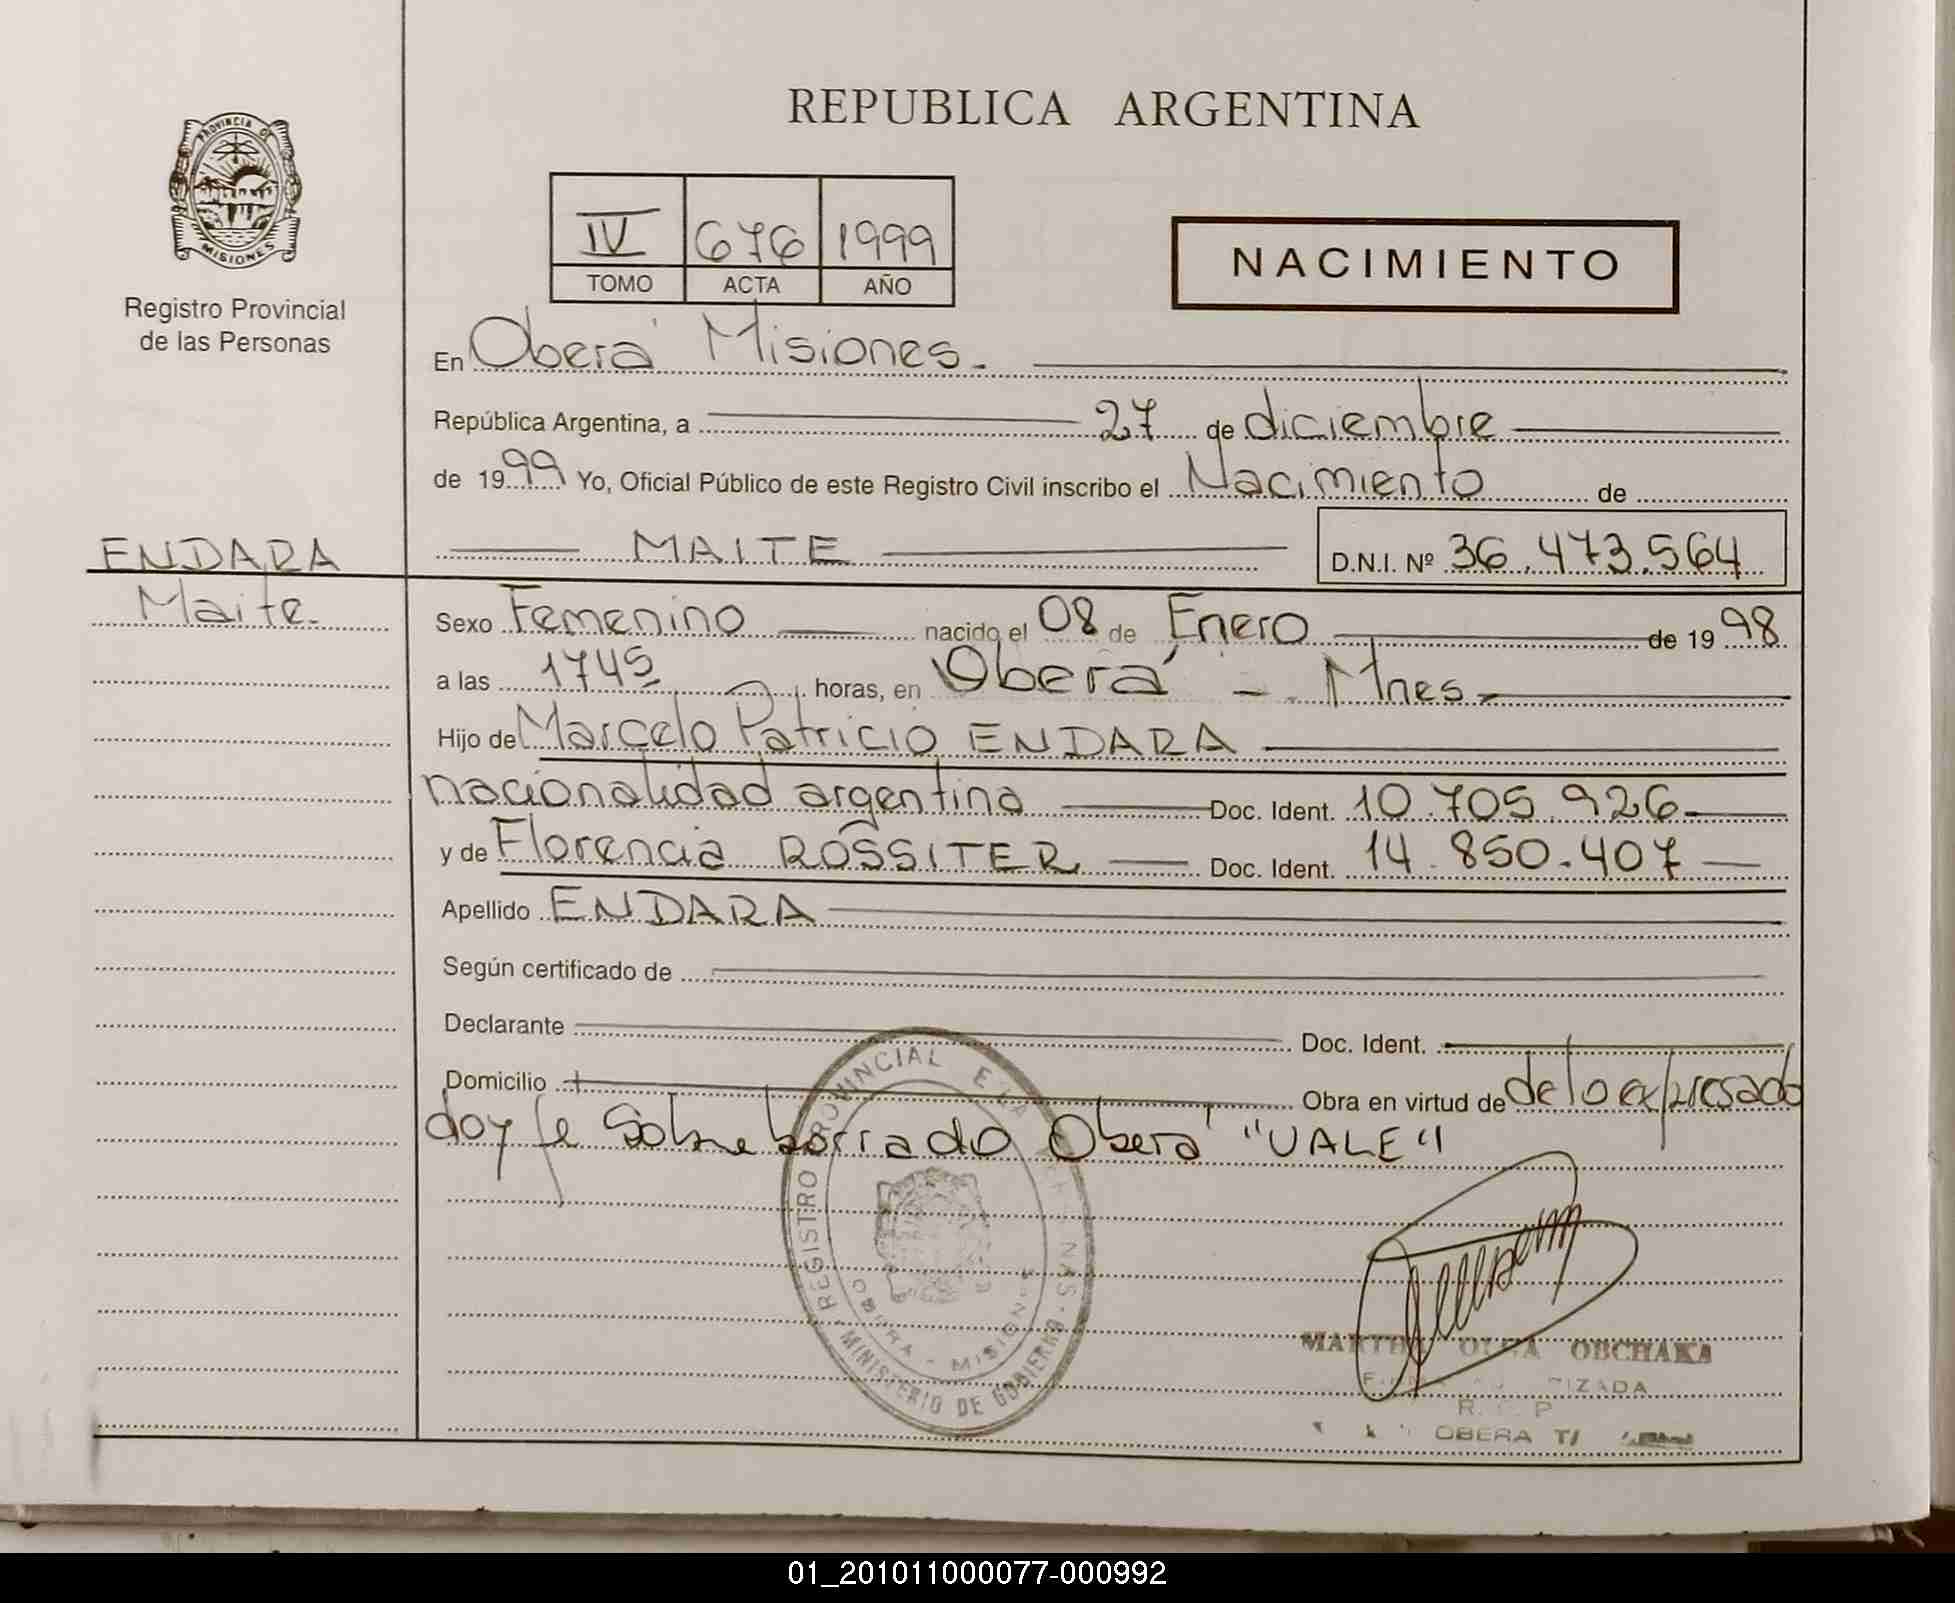 REPUBLICA ARGENTINA
PROVINCIA DE
MISIONES
Registro Provincial
de las Personas
IV 676 1999
TOMO ACTA AÑO
NACIMIENTO
En Oberá Misiones.
República Argentina, a 27 de diciembre
de 1999 Yo, Oficial Público de este Registro Civil inscribo el Nacimiento de
MAITE D.N.I. Nº 36.473.564
ENDARA
Maite.
Sexo Femenino nacido el 08 de Enero de 1998
a las 1745 horas, en Oberá - Mnes.
Hijo de Marcelo Patricio ENDARA
nacionalidad argentina Doc. Ident. 10.705.926
y de Florencia ROSSITER Doc. Ident. 14.850.407
Apellido ENDARA
Según certificado de
Declarante Doc. Ident.
Domicilio Obra en virtud de de lo expresado
doy fe Sobre borrado Oberá "VALE"
REGISTRO PROVINCIAL
MINISTERIO DE GOBIERNO
MARTHA OLGA OBCHAKA
OBERA
01_201011000077-000992